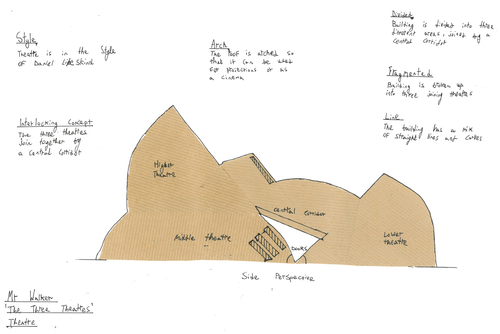 Style
Theatre is in the Style
of Daniel Libeskind
Arch
The roof is arched so
that it can be used
for projections or as
a cinema
Divided
Building is divided into three
different areas, joined by a
central corridor
Fragmented
Building is broken up
into three joining theatres
Line
The building has a mix
of straight lines and curves
Interlocking Concept
The three theatres
Join together by
a central corridor
Highest
Theatre
central corridor
Middle theatre
Doors
Lower
theatre
Side Perspective
Mr Walker
'The Three Theatres'
Theatre